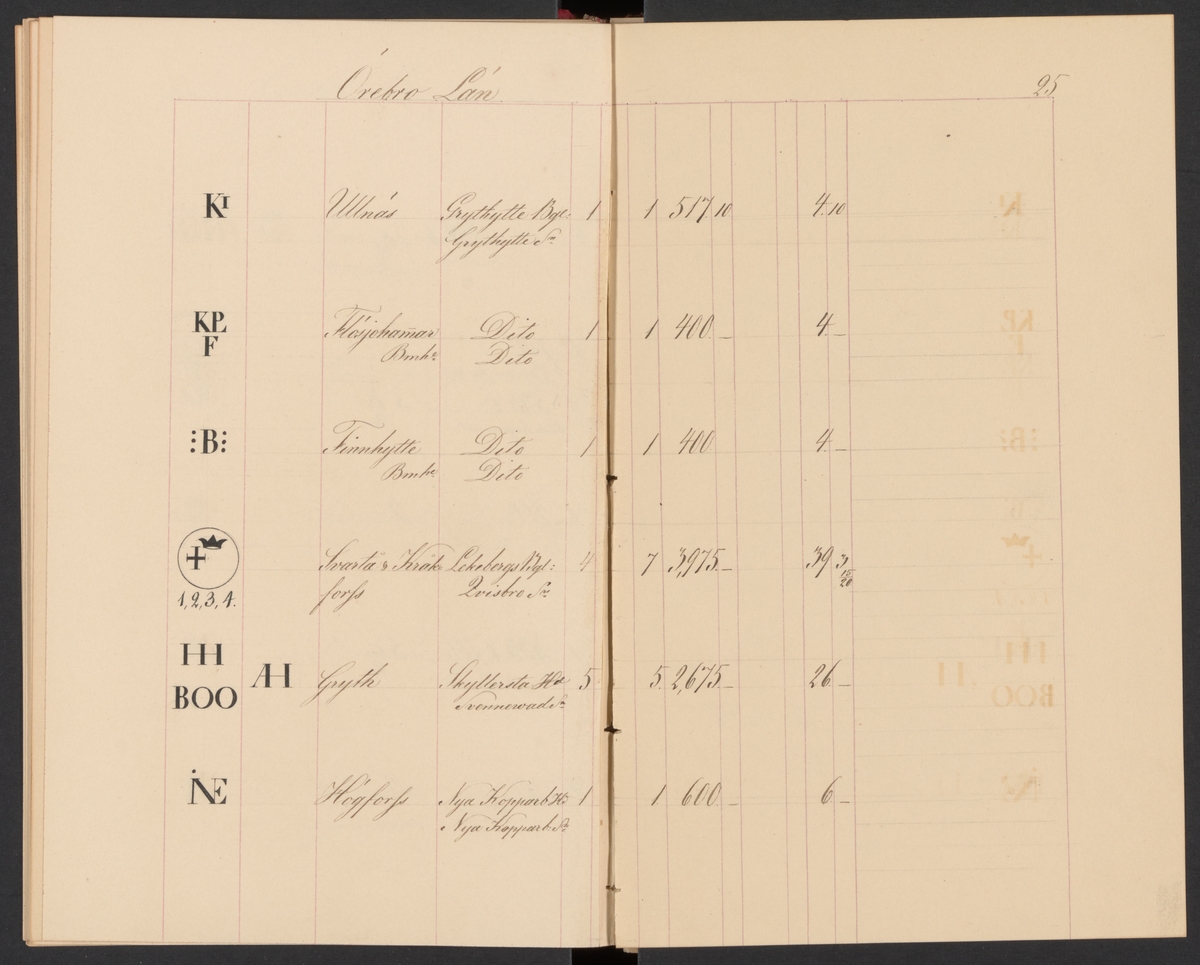 Örebro Län
25
KI Ullnäs Grythytte Bgl: 1 1 517 10 4. 10
Grythytte Sn
KPL Flösjöham̄ar Dito 1 1 400 — 4 —
F Bmhr Dito
:B: Finnhytte Dito 1 1 400 4 —
Bmhr Dito
+ Svartå & Kråk Lekebergs Bgl: 4 7 3,975 — 39 3 15/20
1, 2, 3, 4. forss Qvisbro Sn
HH
BOO AH Gryth Skyllersta Hd 5 5. 2,675 — 26 —
Svennevad Sn
NE Högforss Nya Kopparb. 1 1 600 — 6 —
Nya Kopparb. Sn